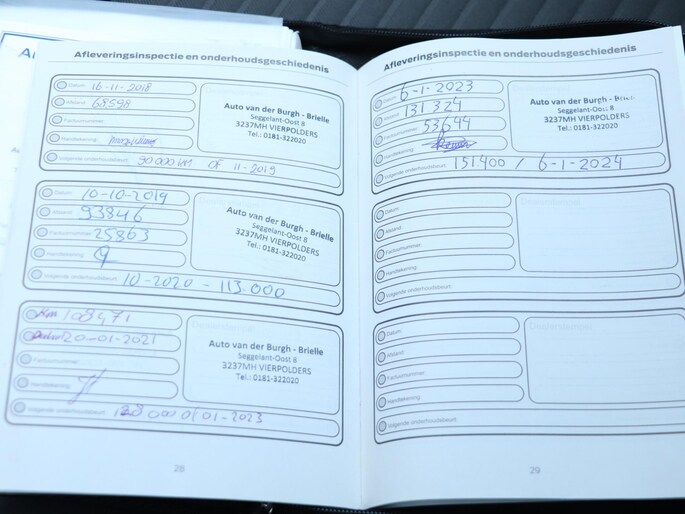 Afleveringsinspectie en onderhoudsgeschiedenis
Datum: 16-11-2018
Afstand: 68598
Factuurnummer:
Handtekening:
Volgende onderhoudsbeurt: 90000 km OF 11-2019
Auto van der Burgh - Brielle
Seggelant-Oost 8
3237MH VIERPOLDERS
Tel.: 0181-322020
Datum: 10-10-2019
Afstand: 93846
Factuurnummer: 25863
Handtekening:
Volgende onderhoudsbeurt: 10-2020 - 113.000
Auto van der Burgh - Brielle
Seggelant-Oost 8
3237MH VIERPOLDERS
Tel.: 0181-322020
Km 108471
20-01-2021
Factuurnummer:
Handtekening:
Volgende onderhoudsbeurt: 128000 of 01-2023
Auto van der Burgh - Brielle
Seggelant-Oost 8
3237MH VIERPOLDERS
Tel.: 0181-322020
28
Afleveringsinspectie en onderhoudsgeschiedenis
Datum: 6-1-2023
Afstand: 131324
Factuurnummer: 53644
Handtekening:
Volgende onderhoudsbeurt: 151400 / 6-1-2024
Auto van der Burgh - Brielle
Seggelant-Oost 8
3237MH VIERPOLDERS
Tel.: 0181-322020
Datum:
Afstand:
Factuurnummer:
Handtekening:
Volgende onderhoudsbeurt:
Datum:
Afstand:
Factuurnummer:
Handtekening:
Volgende onderhoudsbeurt:
Dealerstempel
29